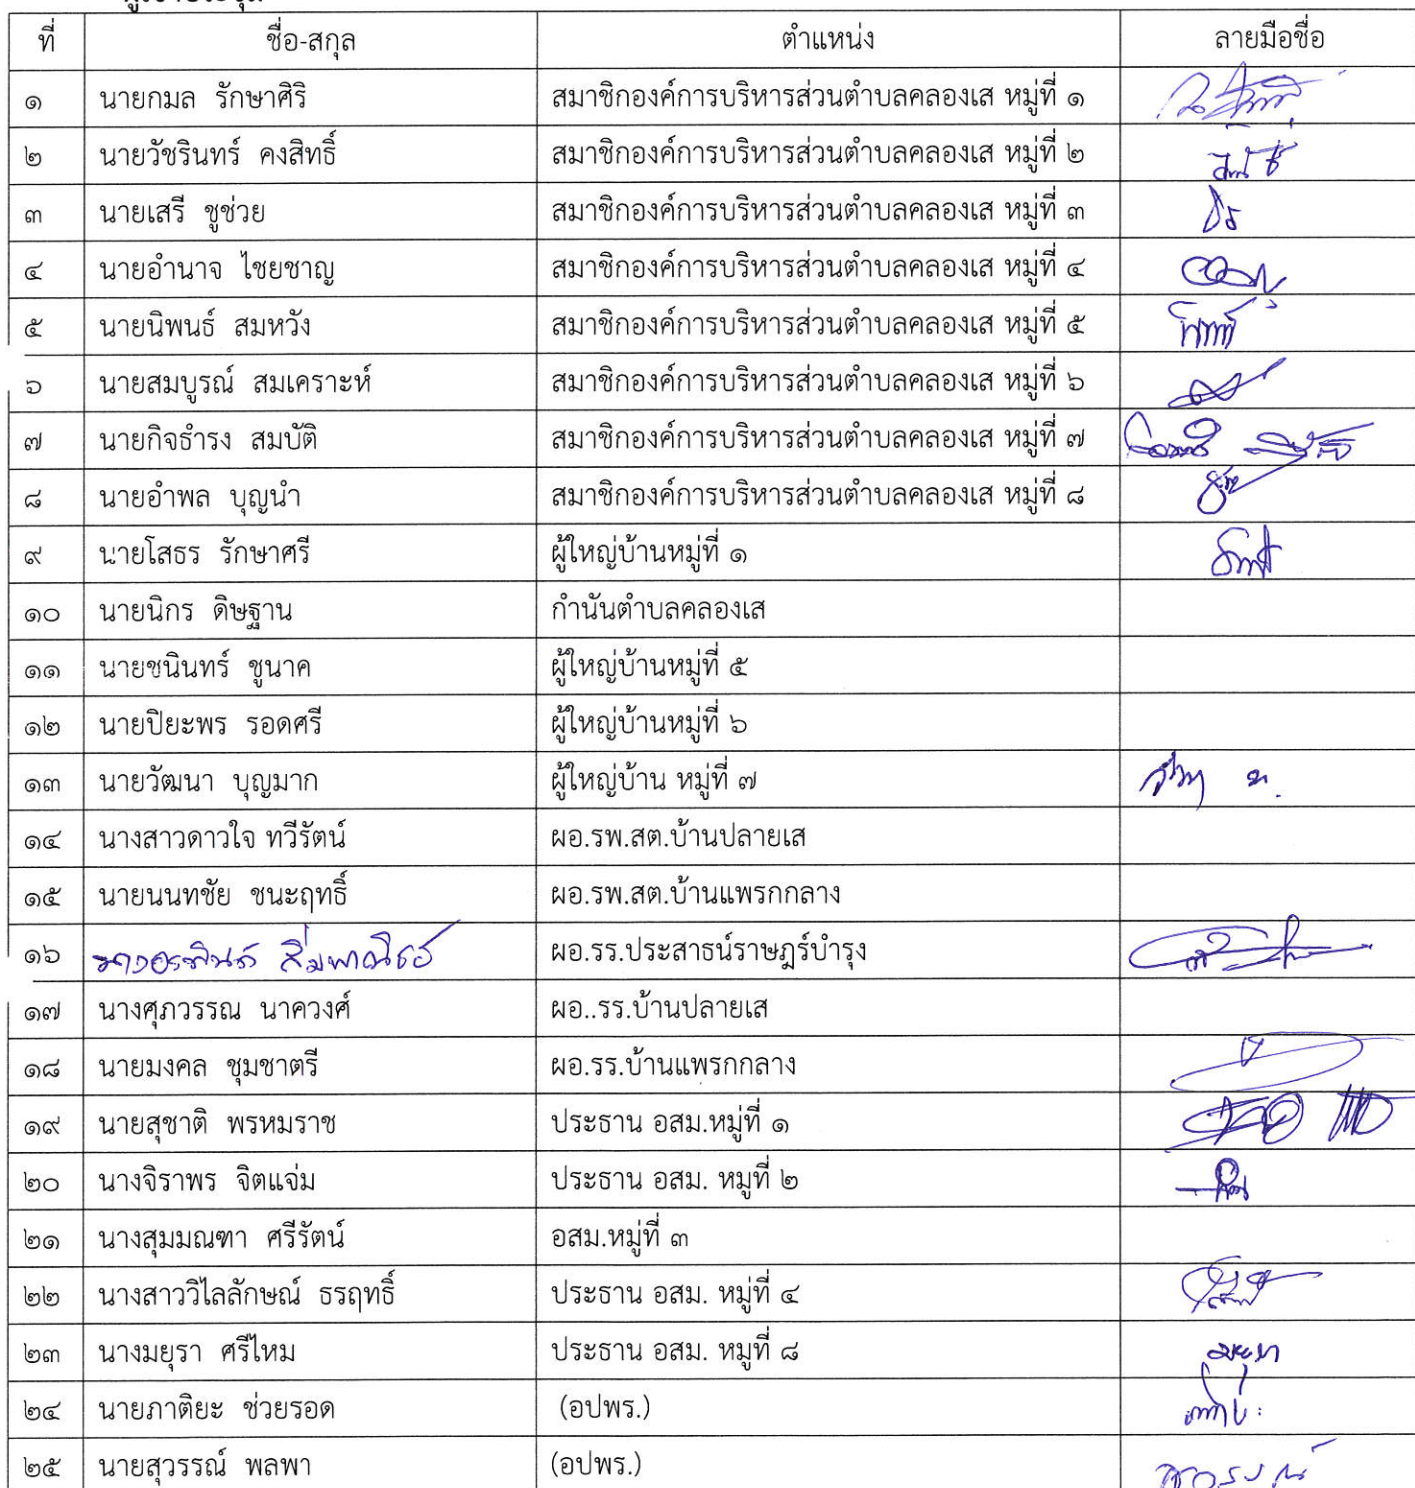 ที่ ชื่อ-สกุล ตำแหน่ง ลายมือชื่อ
๑ นายกมล รักษาศิริ สมาชิกองค์การบริหารส่วนตำบลคลองเส หมู่ที่ ๑
๒ นายวัชรินทร์ คงสิทธิ์ สมาชิกองค์การบริหารส่วนตำบลคลองเส หมู่ที่ ๒
๓ นายเสรี ชูช่วย สมาชิกองค์การบริหารส่วนตำบลคลองเส หมู่ที่ ๓
๔ นายอำนาจ ไชยชาญ สมาชิกองค์การบริหารส่วนตำบลคลองเส หมู่ที่ ๔
๕ นายนิพนธ์ สมหวัง สมาชิกองค์การบริหารส่วนตำบลคลองเส หมู่ที่ ๕
๖ นายสมบูรณ์ สมเคราะห์ สมาชิกองค์การบริหารส่วนตำบลคลองเส หมู่ที่ ๖
๗ นายกิจธำรง สมบัติ สมาชิกองค์การบริหารส่วนตำบลคลองเส หมู่ที่ ๗
๘ นายอำพล บุญนำ สมาชิกองค์การบริหารส่วนตำบลคลองเส หมู่ที่ ๘
๙ นายโสธร รักษาศรี ผู้ใหญ่บ้านหมู่ที่ ๑
๑๐ นายนิกร ดิษฐาน กำนันตำบลคลองเส
๑๑ นายชนินทร์ ชูนาค ผู้ใหญ่บ้านหมู่ที่ ๕
๑๒ นายปิยะพร รอดศรี ผู้ใหญ่บ้านหมู่ที่ ๖
๑๓ นายวัฒนา บุญมาก ผู้ใหญ่บ้าน หมู่ที่ ๗
๑๔ นางสาวดาวใจ ทวีรัตน์ ผอ.รพ.สต.บ้านปลายเส
๑๕ นายนนทชัย ชนะฤทธิ์ ผอ.รพ.สต.บ้านแพรกกลาง
๑๖ ผอ.รร.ประสาธน์ราษฎร์บำรุง
๑๗ นางศุภวรรณ นาควงศ์ ผอ..รร.บ้านปลายเส
๑๘ นายมงคล ชุมชาตรี ผอ.รร.บ้านแพรกกลาง
๑๙ นายสุชาติ พรหมราช ประธาน อสม.หมู่ที่ ๑
๒๐ นางจิราพร จิตแจ่ม ประธาน อสม. หมูที่ ๒
๒๑ นางสุมมณฑา ศรีรัตน์ อสม.หมู่ที่ ๓
๒๒ นางสาววิไลลักษณ์ ธรฤทธิ์ ประธาน อสม. หมู่ที่ ๔
๒๓ นางมยุรา ศรีไหม ประธาน อสม. หมูที่ ๘ มยุรา
๒๔ นายภาติยะ ช่วยรอด (อปพร.)
๒๕ นายสุวรรณ์ พลพา (อปพร.)